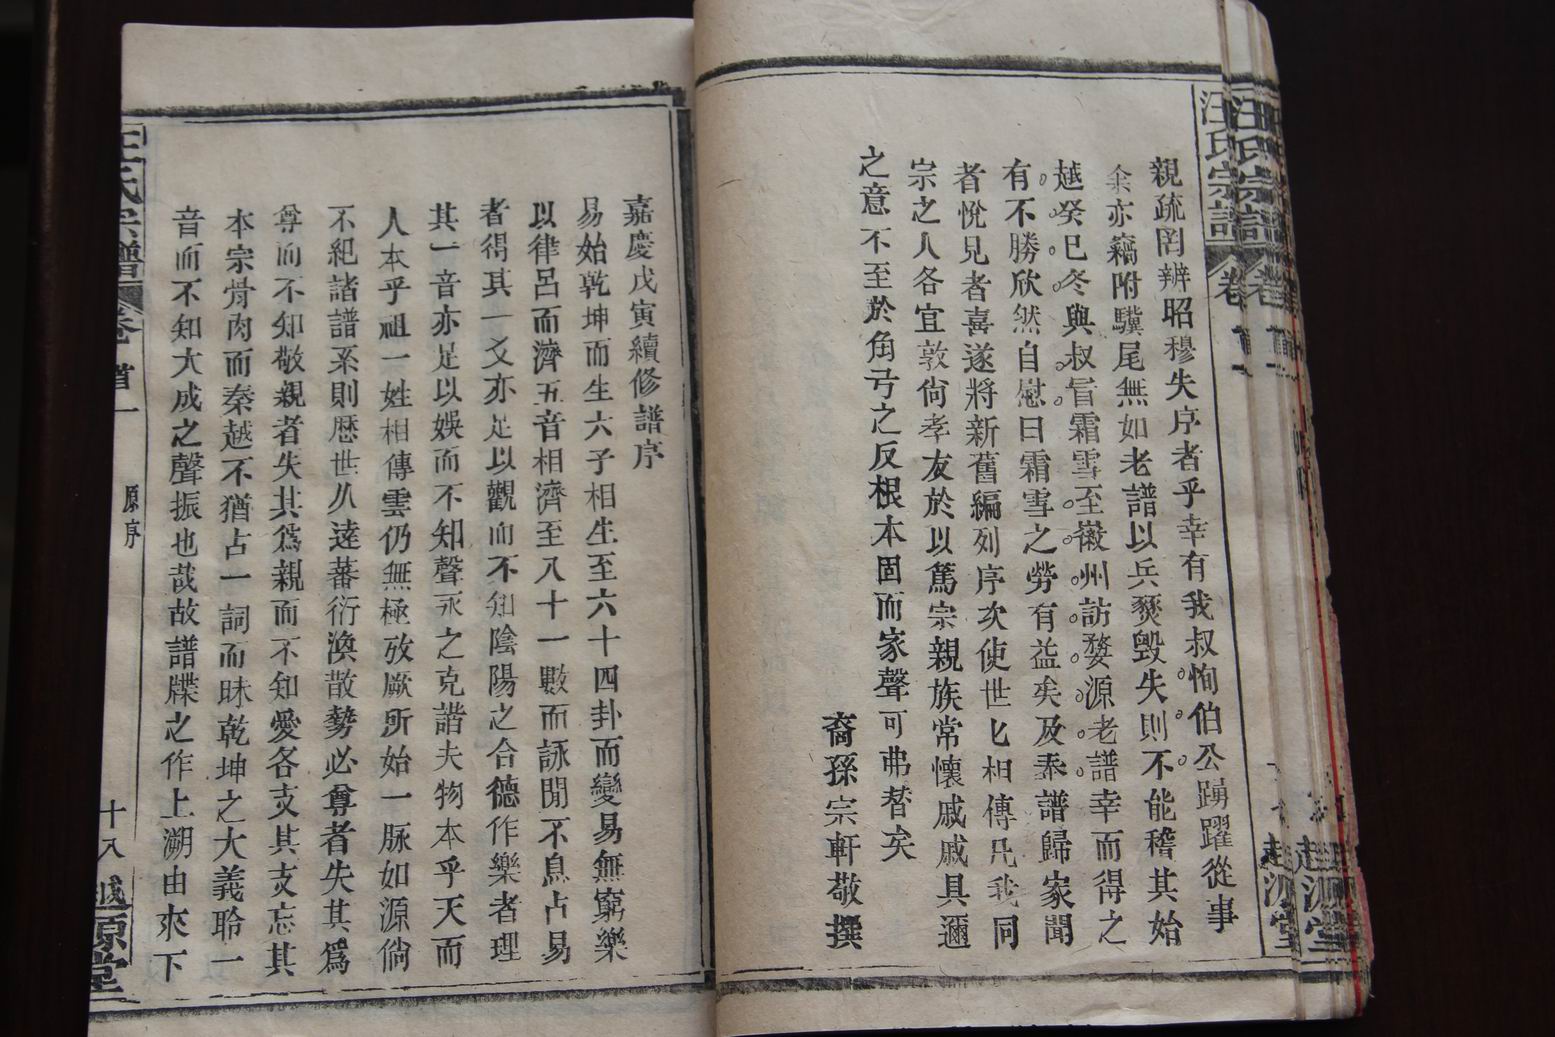 汪氏宗譜
卷首
親疏罔辨昭穆失序者乎幸有我叔恂伯公踴躍從事
余亦竊附驥尾無如老譜以兵燹毀失則不能稽其始
越癸巳冬與叔冒霜雪至徽州訪婺源老譜幸而得之
有不勝欣然自慰曰霜雪之勞有益矣及奉譜歸家聞
者悅見者喜遂將新舊編列序次使世匕相傳凡我同
宗之人各宜敦尙孝友於以篤宗親族常懷戚戚具邇
之意不至於角弓之反根本固而家聲可弗替矣
裔孫宗軒敬撰
嘉慶戊寅續修譜序
易始乾坤而生六子相生至六十四卦而變易無窮樂
以律呂而濟五音相濟至八十一數而詠閒不息占易
者得其一爻亦足以觀而不知陰陽之合德作樂者理
其一音亦足以娛而不知聲永之克諧夫物本乎天而
人本乎祖一姓相傳雲仍無極攷厥所始一脈如源倘
不紀諸譜系則歷世久逵蕃衍渙散勢必尊者失其爲
尊而不知敬親者失其爲親而不知愛各支其支忘其
本宗骨肉而秦越不猶占一詞而昧乾坤之大義聆一
音而不知大成之聲振也哉故譜牒之作上溯由來下
汪氏宗譜
卷首一
原序
十八
越源堂